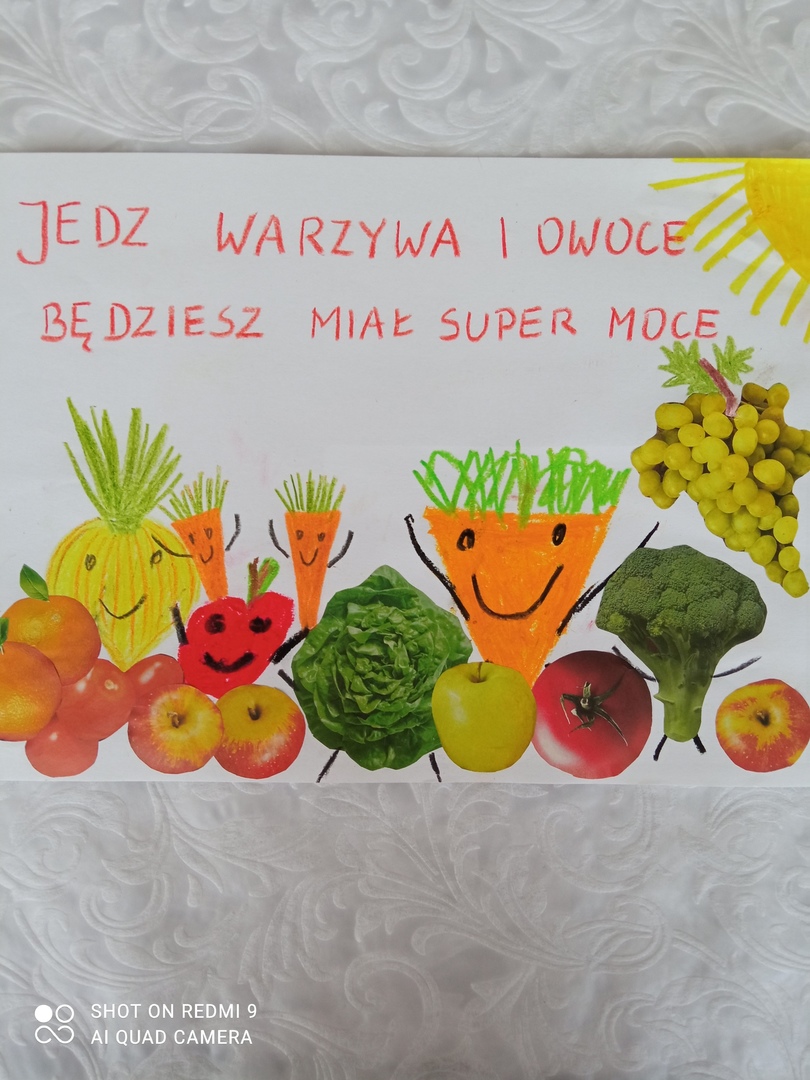 JEDZ WARZYWA I OWOCE
BĘDZIESZ MIAŁ SUPER MOCE
SHOT ON REDMI 9
AI QUAD CAMERA